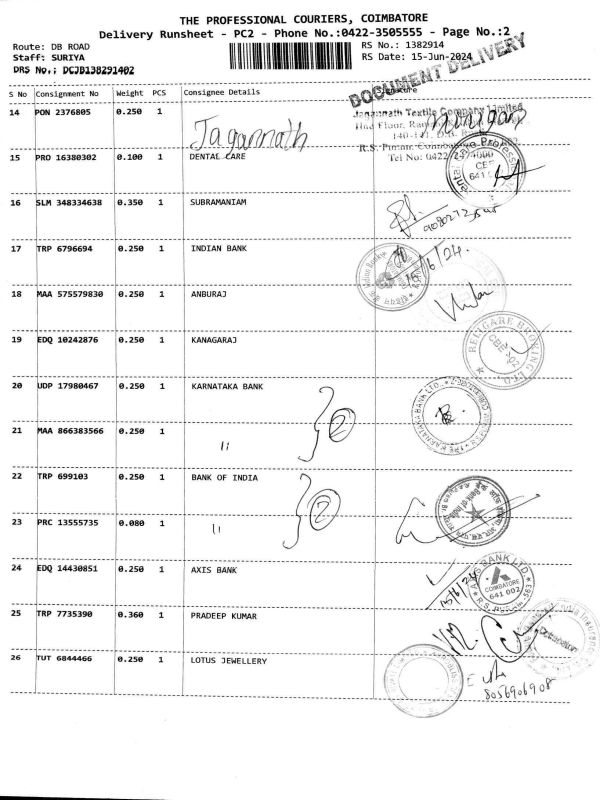 THE PROFESSIONAL COURIERS, COIMBATORE
Delivery Runsheet - PC2 - Phone No.:0422-3505555 - Page No.:2
Route: DB ROAD RS No.: 1382914
Staff: SURIYA RS Date: 15-Jun-2024
DRS No.; DCJB138291402
DOCUMENT DELIVERY
S No Consignment No Weight PCS Consignee Details Signature
14 PON 2376805 0.250 1 Jagannath
Jagannath Textile Company Limited
15 PRO 16380302 0.100 1 DENTAL CARE
16 SLM 348334638 0.350 1 SUBRAMANIAM
17 TRP 6796694 0.250 1 INDIAN BANK
18 MAA 575579830 0.250 1 ANBURAJ
19 EDQ 10242876 0.250 1 KANAGARAJ
RELIGARE BROKING LTD
20 UDP 17980467 0.250 1 KARNATAKA BANK
2
21 MAA 866383566 0.250 1 "
22 TRP 699103 0.250 1 BANK OF INDIA
2
23 PRC 13555735 0.080 1 "
24 EDQ 14430851 0.250 1 AXIS BANK
AXIS BANK LTD.
COIMBATORE
641 002
25 TRP 7735390 0.360 1 PRADEEP KUMAR
26 TUT 6844466 0.250 1 LOTUS JEWELLERY
8056906908